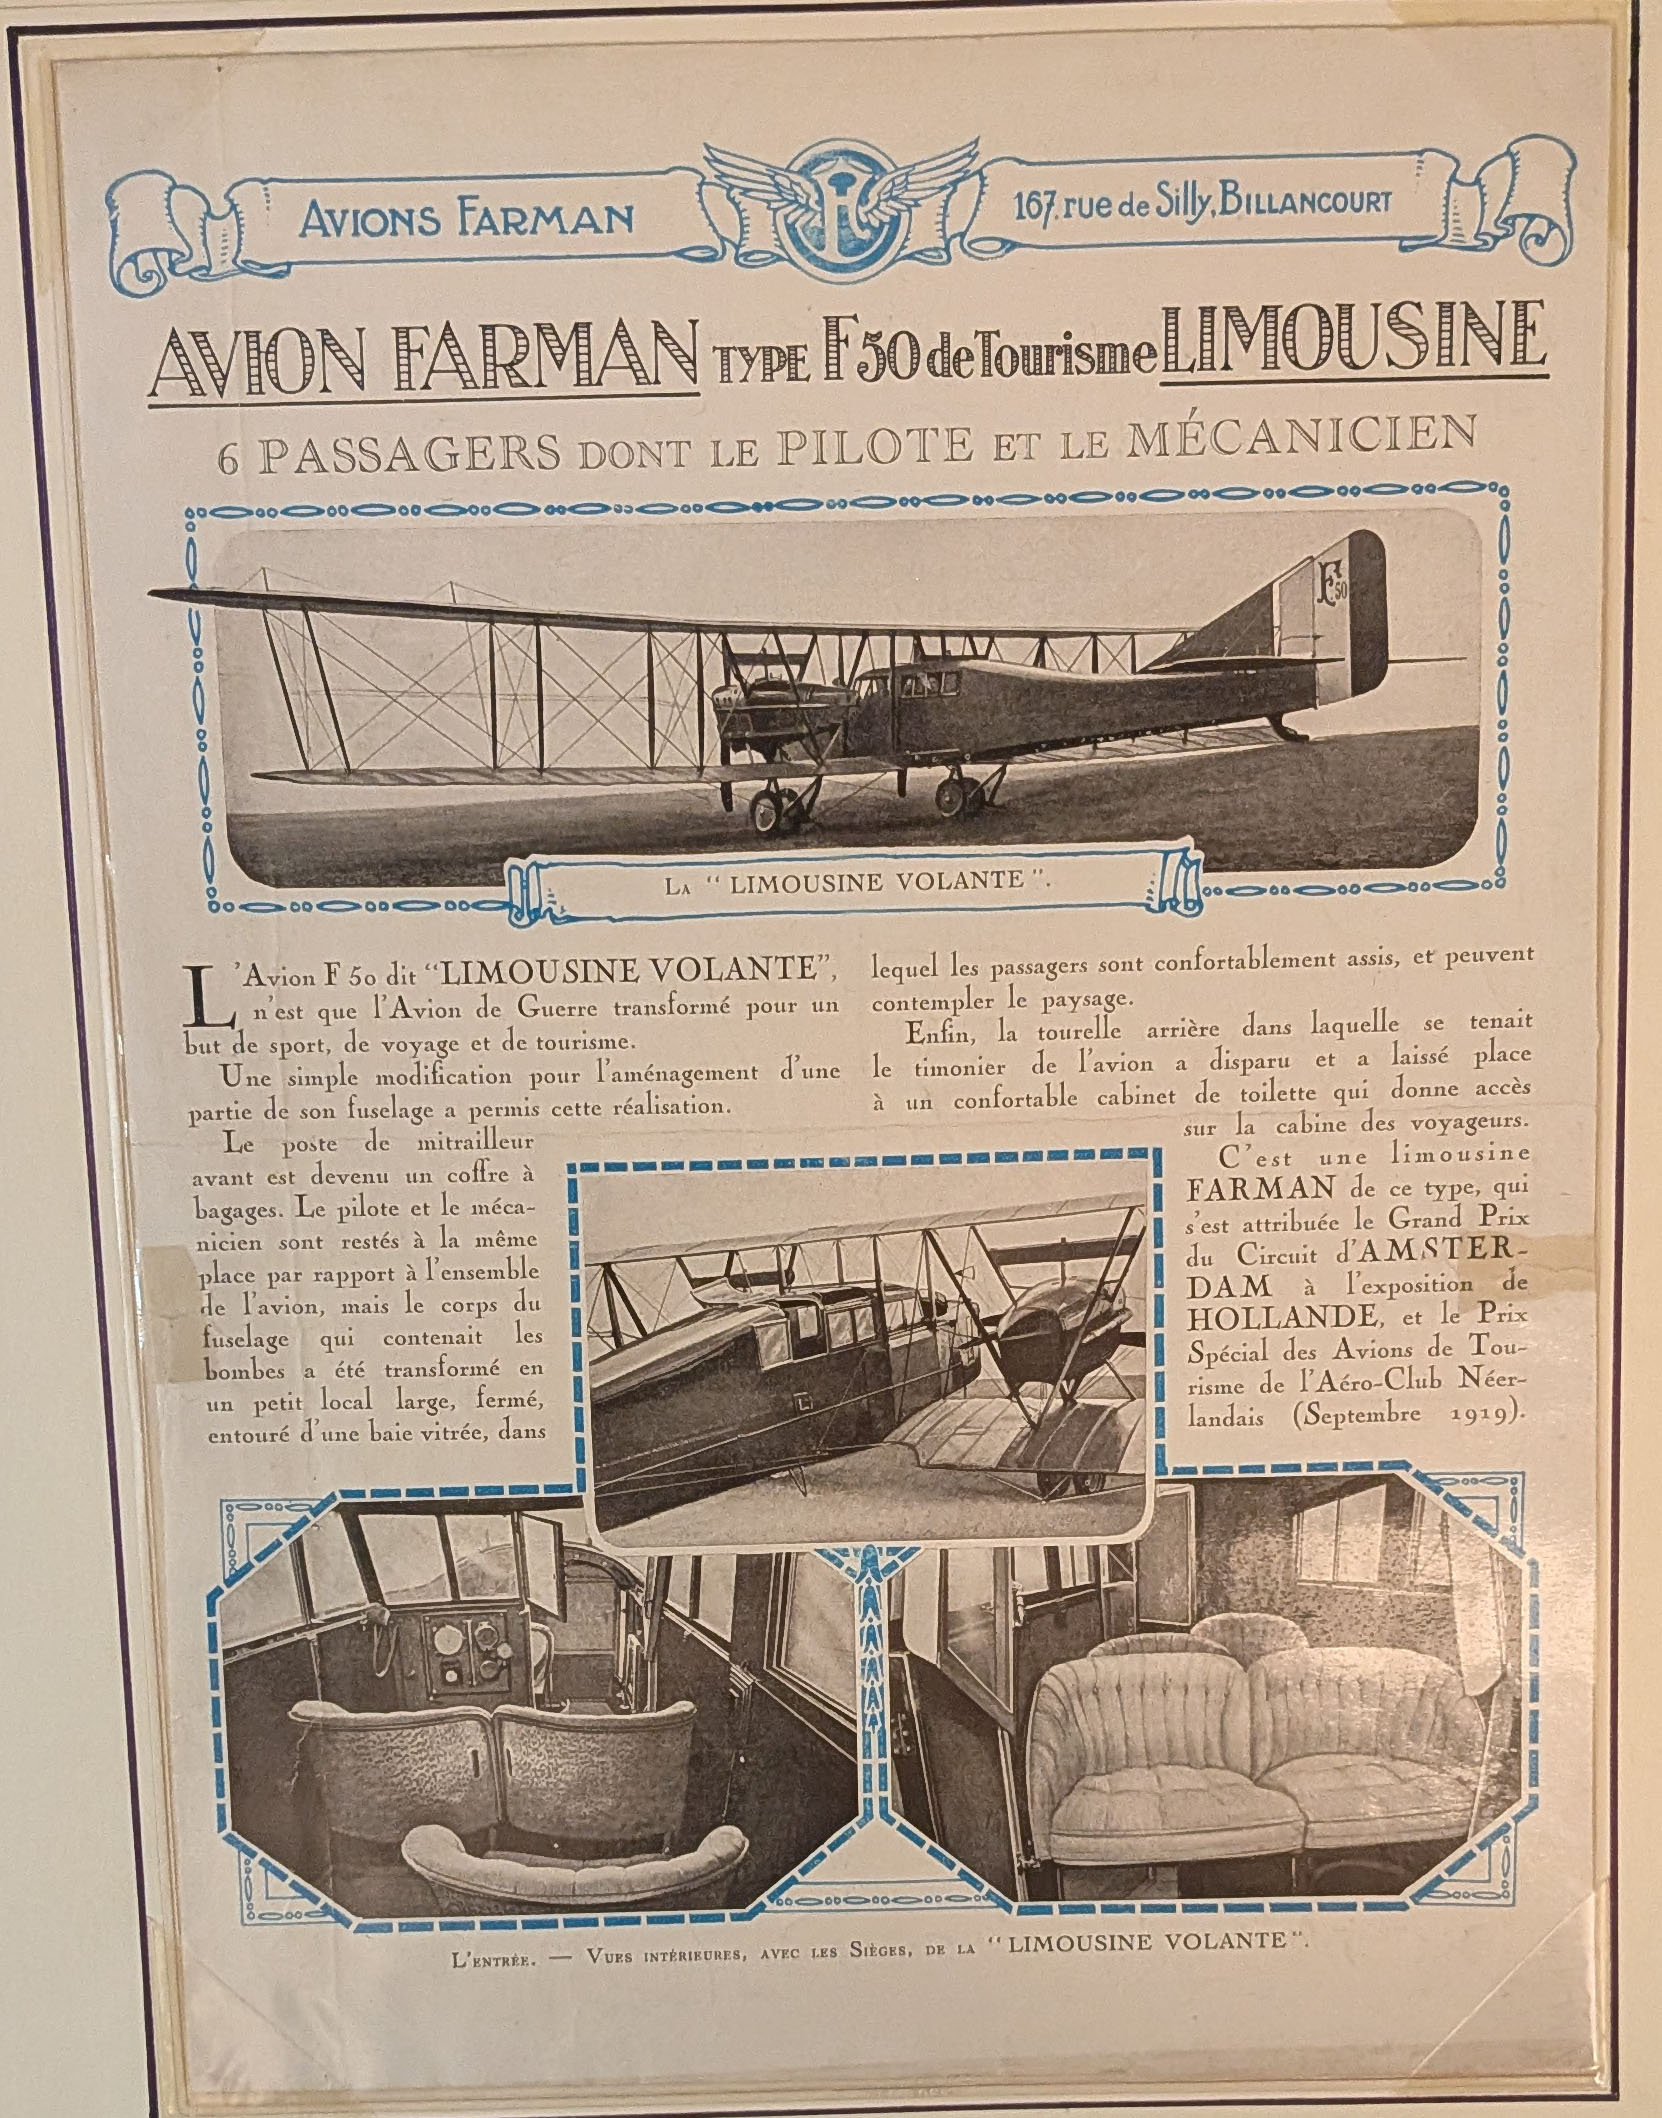 AVIONS FARMAN
167, rue de Silly, BILLANCOURT
AVION FARMAN TYPE F 50 de Tourisme LIMOUSINE
6 PASSAGERS DONT LE PILOTE ET LE MÉCANICIEN
F 50
LA " LIMOUSINE VOLANTE ".
L'Avion F 50 dit "LIMOUSINE VOLANTE",
n'est que l'Avion de Guerre transformé pour un
but de sport, de voyage et de tourisme.
Une simple modification pour l'aménagement d'une
partie de son fuselage a permis cette réalisation.
Le poste de mitrailleur
avant est devenu un coffre à
bagages. Le pilote et le méca-
nicien sont restés à la même
place par rapport à l'ensemble
de l'avion, mais le corps du
fuselage qui contenait les
bombes a été transformé en
un petit local large, fermé,
entouré d'une baie vitrée, dans
lequel les passagers sont confortablement assis, et peuvent
contempler le paysage.
Enfin, la tourelle arrière dans laquelle se tenait
le timonier de l'avion a disparu et a laissé place
à un confortable cabinet de toilette qui donne accès
sur la cabine des voyageurs.
C'est une limousine
FARMAN de ce type, qui
s'est attribuée le Grand Prix
du Circuit d'AMSTER-
DAM à l'exposition de
HOLLANDE, et le Prix
Spécial des Avions de Tou-
risme de l'Aéro-Club Néer-
landais (Septembre 1919).
L'ENTRÉE. — VUES INTÉRIEURES, AVEC LES SIÈGES, DE LA " LIMOUSINE VOLANTE ".